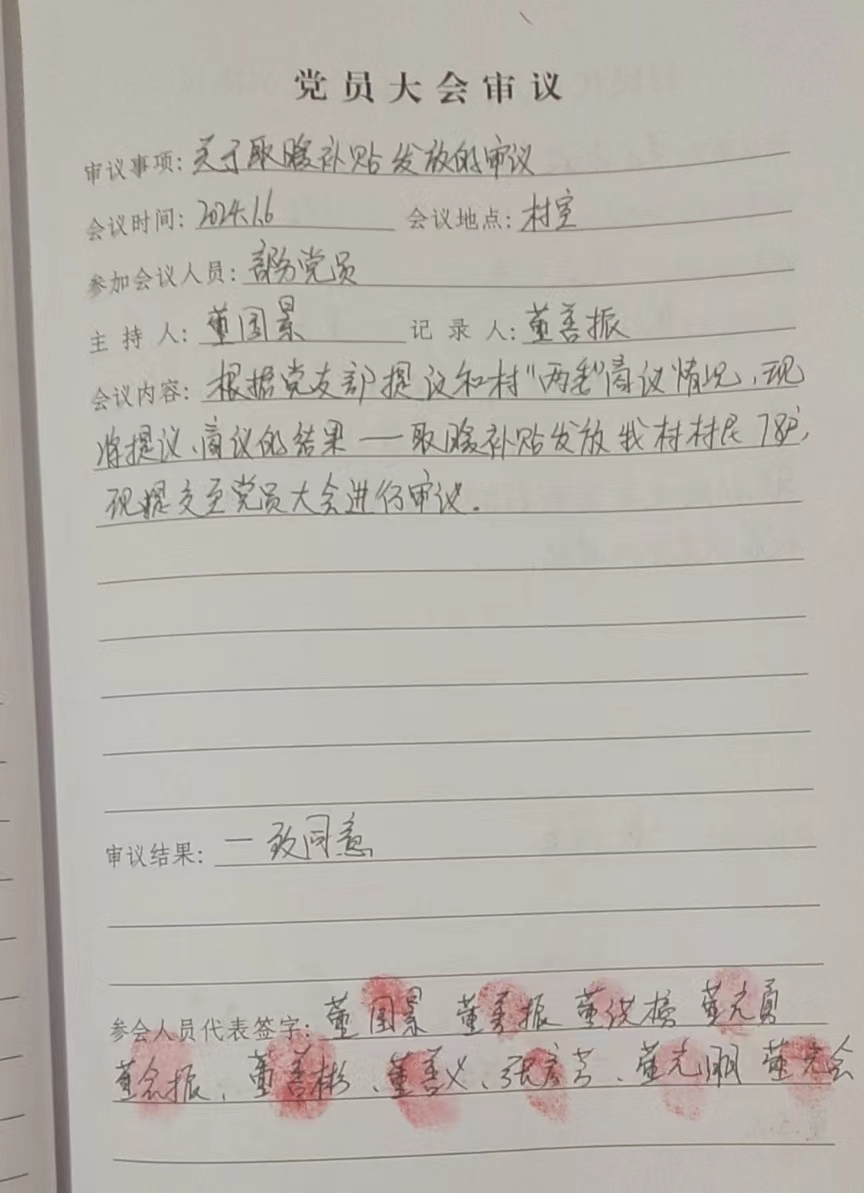 党员大会审议
审议事项: 关于取暖补贴发放的审议
会议时间: 2024.1.6 会议地点: 村室
参加会议人员: 部分党员
主持人: 董国景 记录人: 董善振
会议内容: 根据党支部提议和村"两委"商议情况,现
将提议、商议的结果—取暖补贴发放我村村民78户,
现提交至党员大会进行审议.
审议结果: 一致同意
参会人员代表签字: 董国景 董善振 董洪 董元勇
董念振、董善彬、董善义、张、董光 董光会